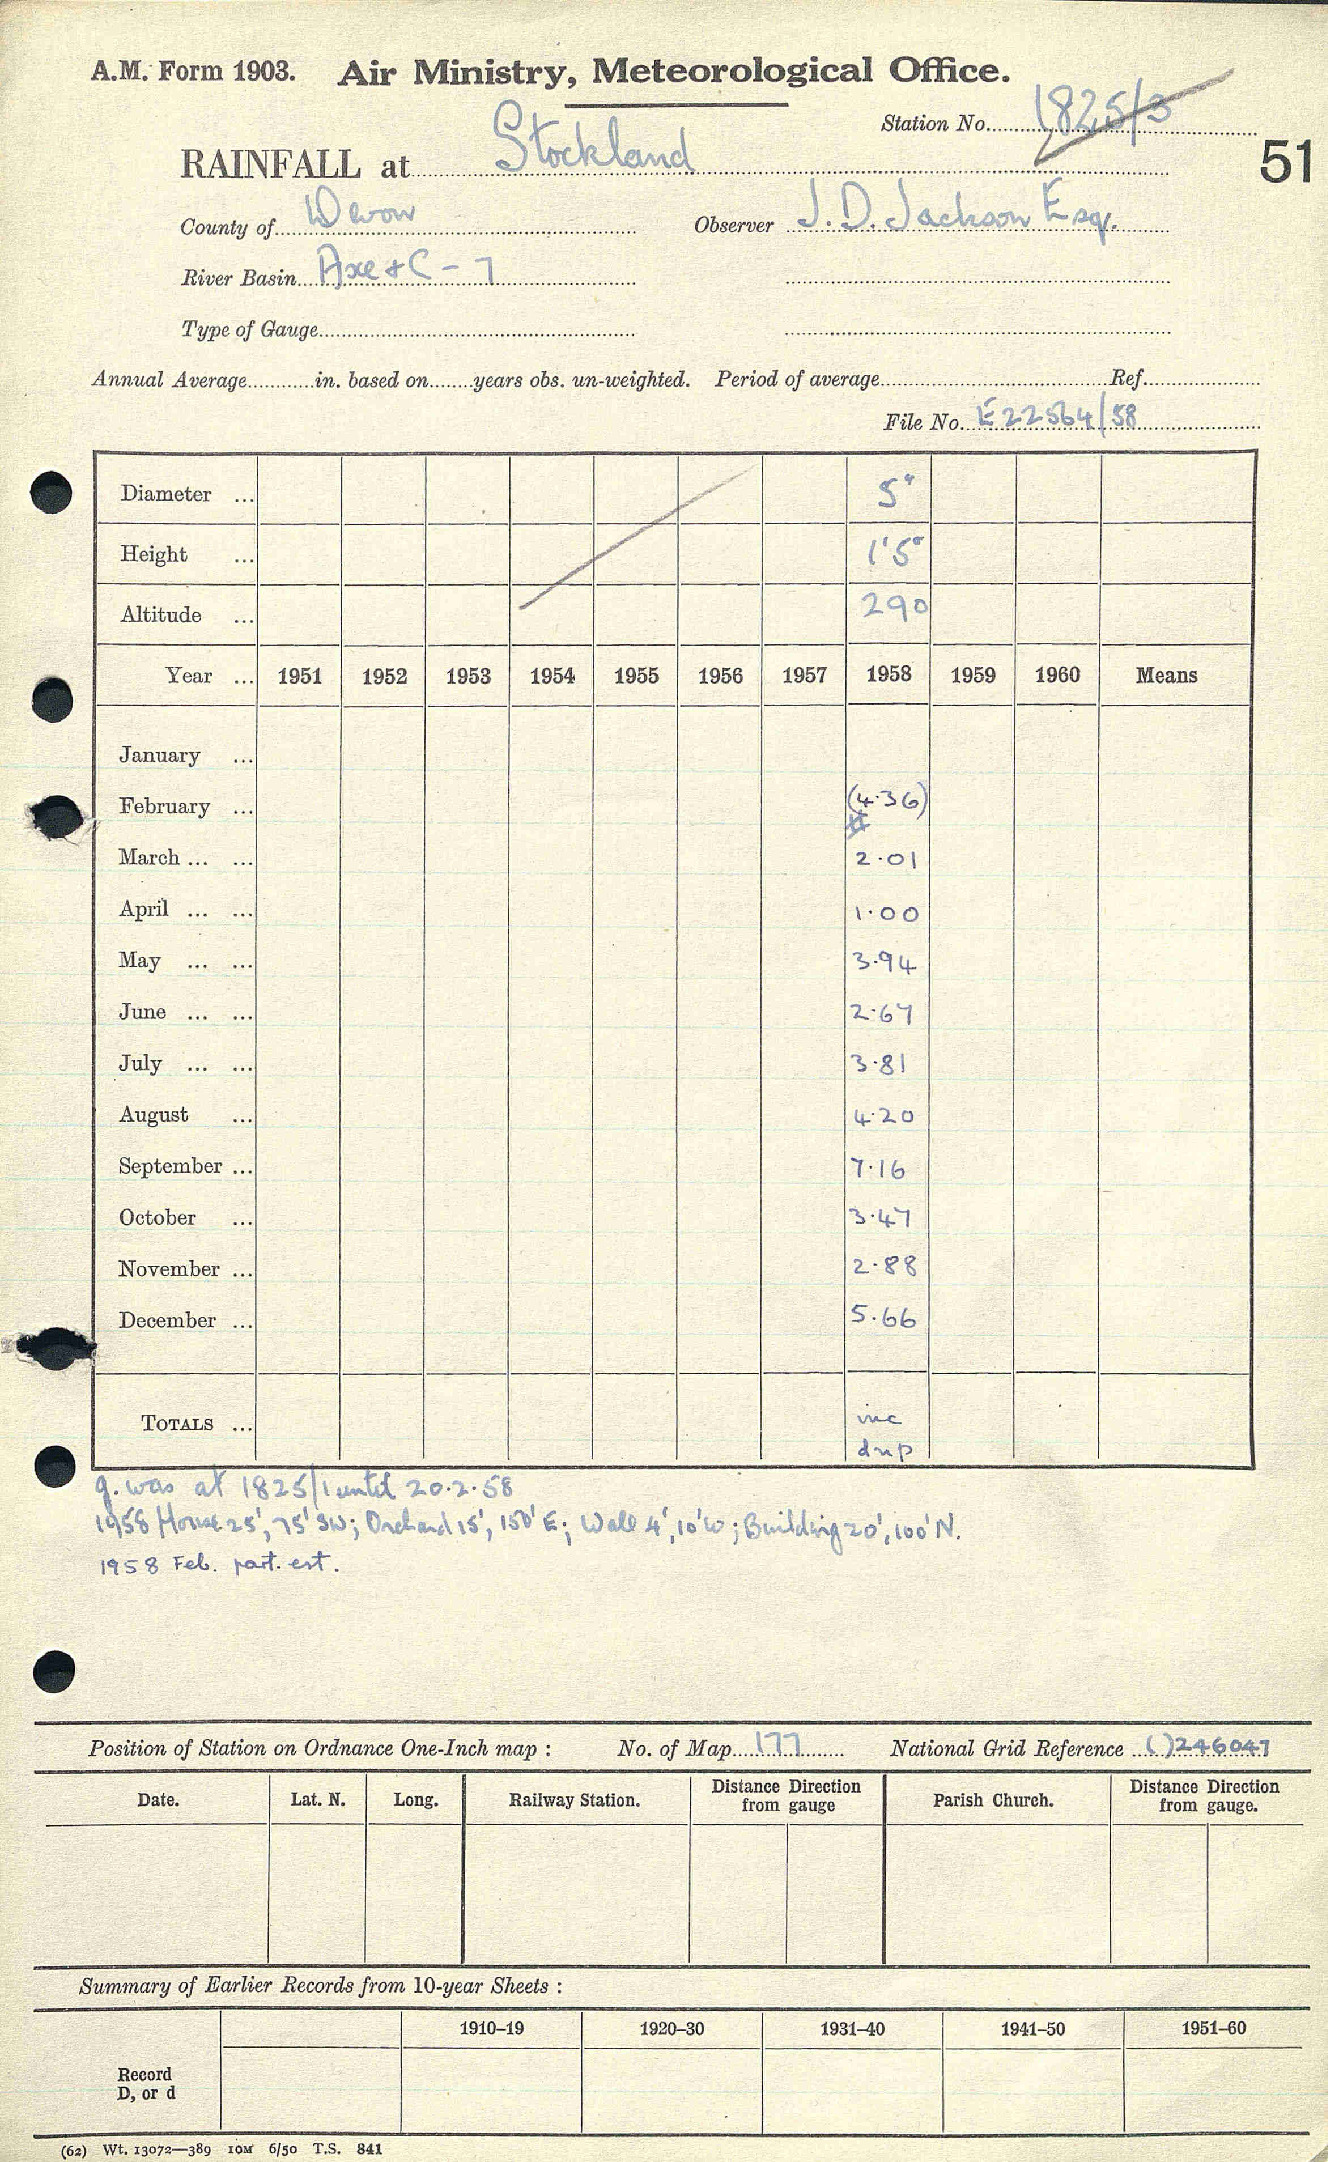 A.M. Form 1903. Air Ministry, Meteorological Office.
Station No. 1825/3
51
RAINFALL at Stockland
County of Devon Observer J. D. Jackson Esq.
River Basin Axe & C - 7
Type of Gauge
Annual Average in. based on years obs. un-weighted. Period of average Ref.
File No. E22564/58
Diameter ... 5"
Height ... 1'5"
Altitude ... 290
Year ... 1951 1952 1953 1954 1955 1956 1957 1958 1959 1960 Means
January ...
February ... (4.36)
March ... ... 2.01
April ... ... 1.00
May ... ... 3.94
June ... ... 2.67
July ... ... 3.81
August ... 4.20
September ... 7.16
October ... 3.47
November ... 2.88
December ... 5.66
TOTALS ... inc
dnp
g. was at 1825/1 until 20.2.58
1958 House 25', 75' SW; Orchard 15', 150' E; Wall 4', 10' W; Building 20', 100' N.
1958 Feb. part. est.
Position of Station on Ordnance One-Inch map : No. of Map 177 National Grid Reference ( ) 246047
Date. Lat. N. Long. Railway Station. Distance Direction from gauge Parish Church. Distance Direction from gauge.
Summary of Earlier Records from 10-year Sheets :
1910–19 1920–30 1931–40 1941–50 1951–60
Record
D, or d
(62) Wt. 13072—389 10M 6/50 T.S. 841